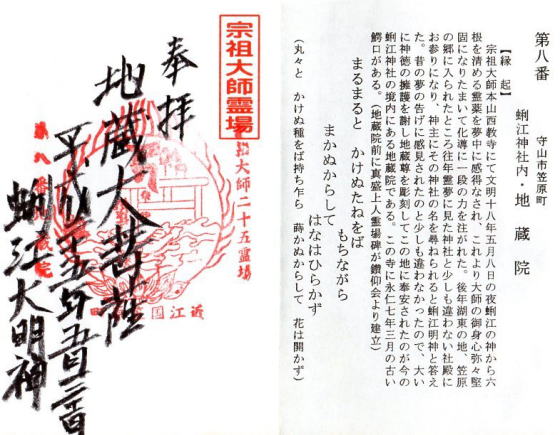 第八番
守山市笠原町
蜊江神社内・地蔵院
【縁起】
宗祖大師本山西教寺にて文明十八年五月八日の夜蜊江の神から六
根を清める霊薬を夢中に感得なされ、これより大師の御身心弥々堅
固になりたまいて化導に一段の力を注がれた。後年湖東の地、笠原
の郷に入られたところ往年霊夢に見た神社と少しも違わない社殿に
お参りになり、神主にその神社の名を尋ねられると蜊江明神と答え
た。昔の夢の告げに感見されたのと少しも違わなかったので、大い
に神徳の擁護を謝し地蔵尊を彫刻してこの地に奉安されたのが今の
蜊江神社の境内にある地蔵院である。この寺に永仁七年三月の古い
鰐口がある。(地蔵院前に真盛上人霊場碑が鑽仰会により建立)
まるまると かけぬたねをば
もちながら
まかぬからして
はなはひらかず
(丸々と かけぬ種をば持ち乍ら 蒔かぬからして 花は開かず)
宗祖大師霊場
大師二十五霊場
近江国
奉拝
地蔵大菩薩
平成二十五年五月二十三日
蜊江大明神